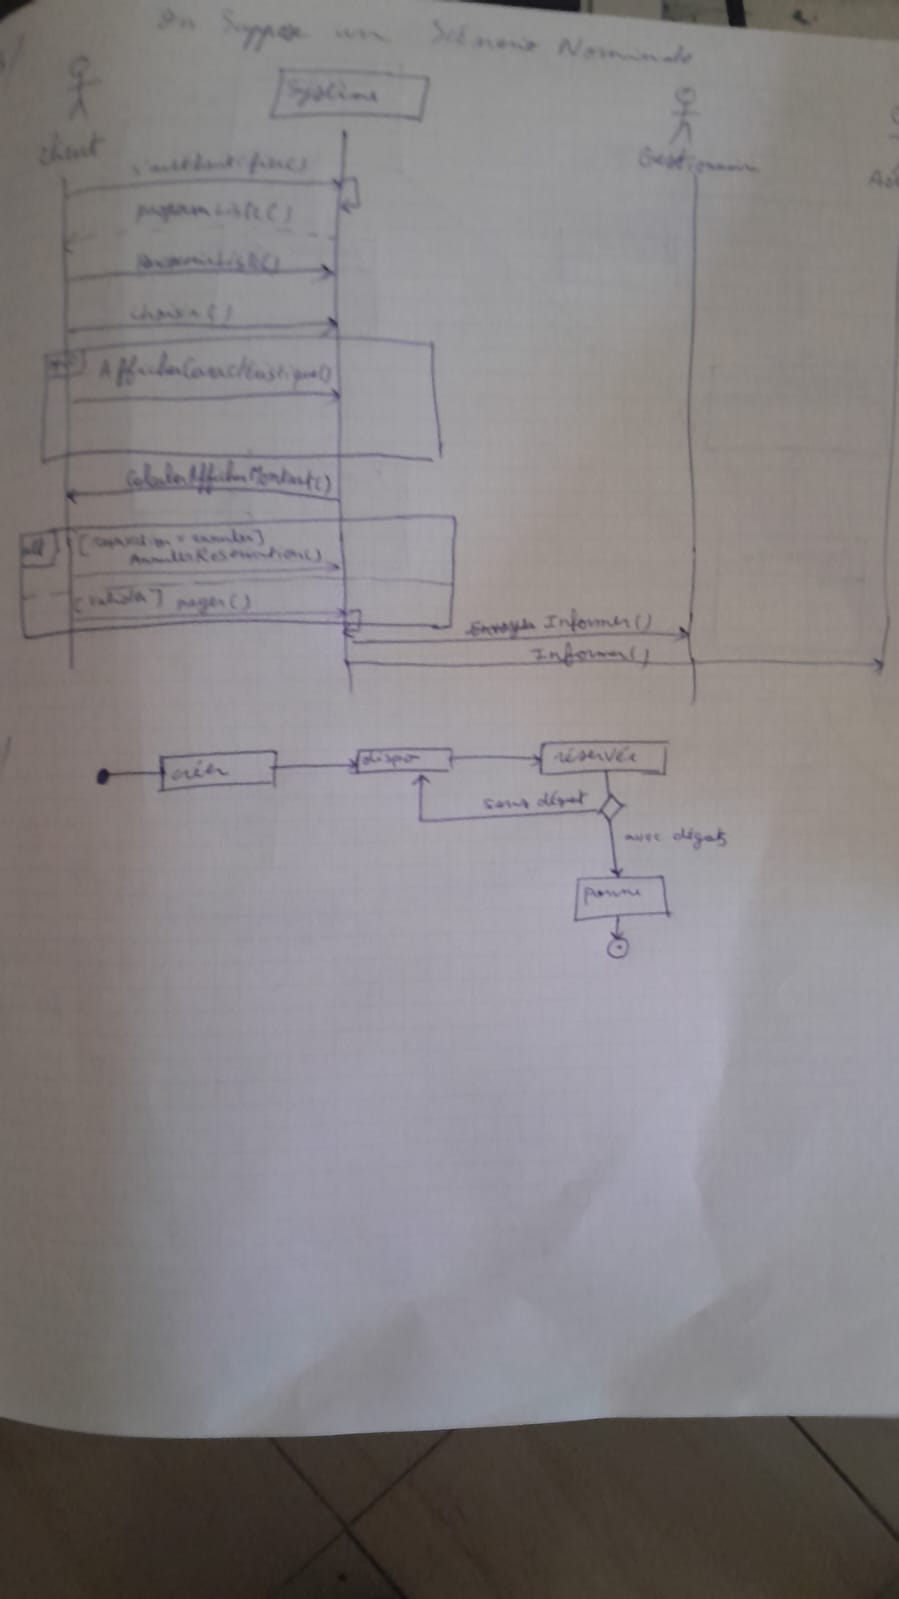 On Suppose un Scénario Nominale
Système
client
Gestionnaire
s'authentifier()
()
()
choisir()
AfficherCaractéristique()
CalculerAfficherMontant()
alt
[ = annuler]
AnnulerReservation()
[valider] payer()
Informer()
Informer()
créer
dispo
réservée
sans dégat
avec dégats
panne